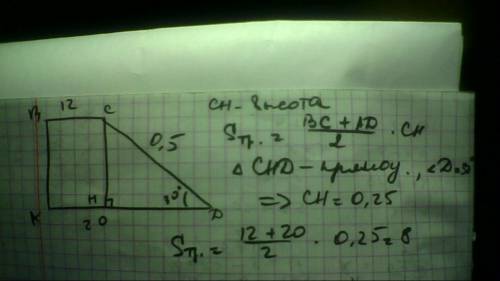 12
B C
0,5
H
30° D
K
20
CH - высота
Sтр. = BC + AD / 2 · CH
△ CHD - прямоу., ∠D=30°
=> CH = 0,25
Sтр. = 12 + 20 / 2 · 0,25 = 8